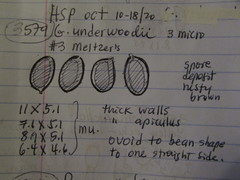 HSP oct 10-18/20
3579 G. underwoodii 3 micro
#3 meltzer's
spore
deposit
rusty
brown
11 x 5.1
7.6 x 5.1
8.9 x 5.1
6.4 x 4.6
mu.
thick walls
" apiculus
ovoid to bean shape
to one straught side.